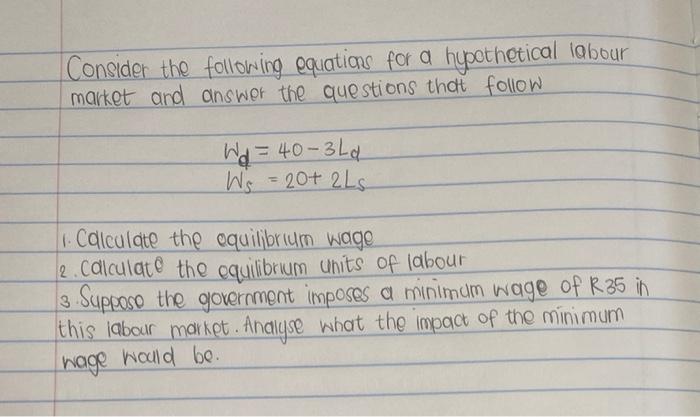 Consider the following equations for a hypothetical labour
market and answer the questions that follow
Wd = 40 - 3Ld
Ws = 20 + 2Ls
1. Calculate the equilibrium wage
2. Calculate the equilibrium units of labour
3. Suppose the government imposes a minimum wage of R35 in
this labour market. Analyse what the impact of the minimum
wage would be.